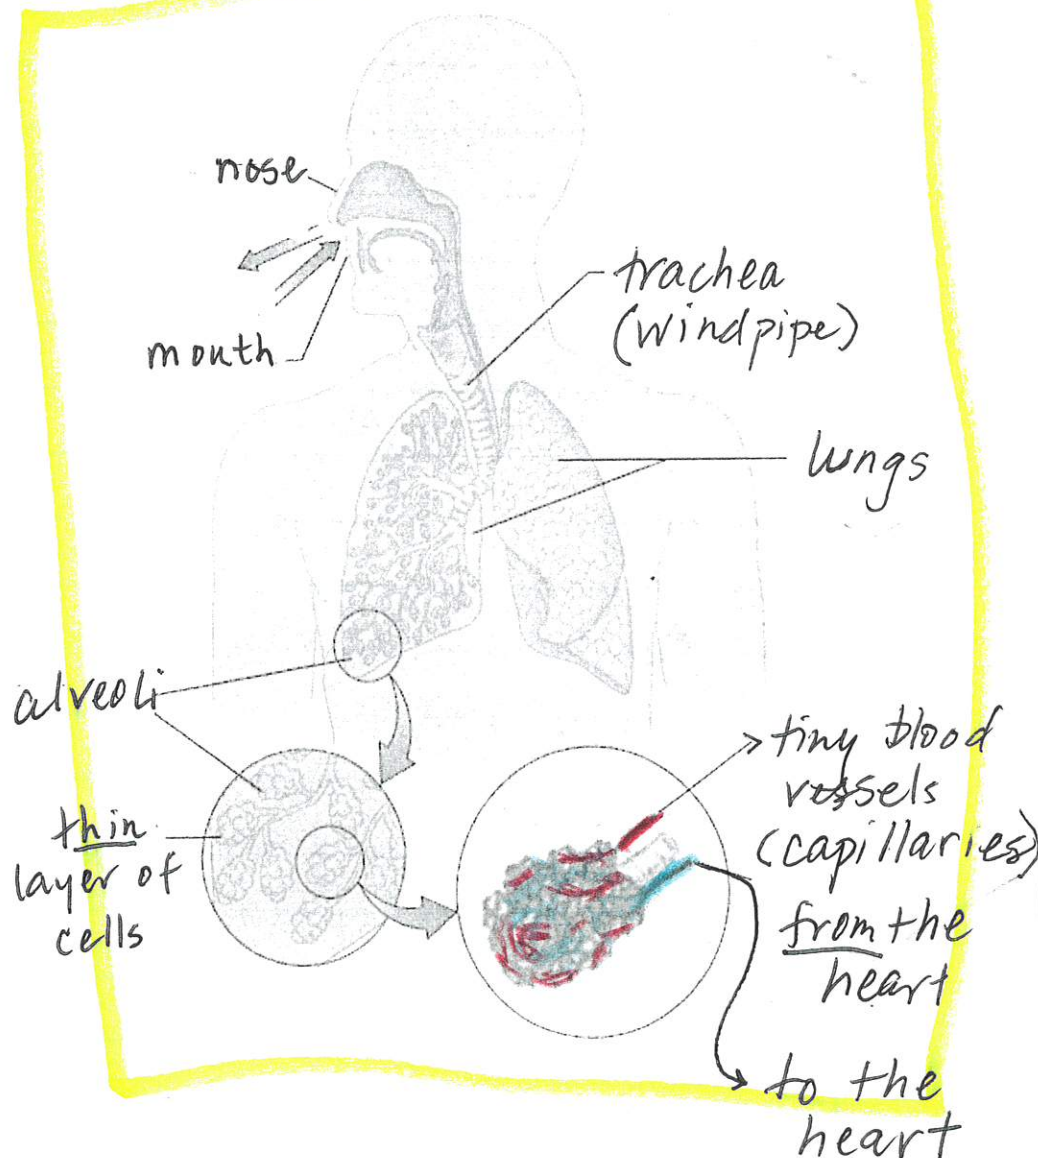 nose
mouth
trachea
(windpipe)
lungs
alveoli
thin
layer of
cells
tiny blood
vessels
(capillaries)
from the
heart
to the
heart